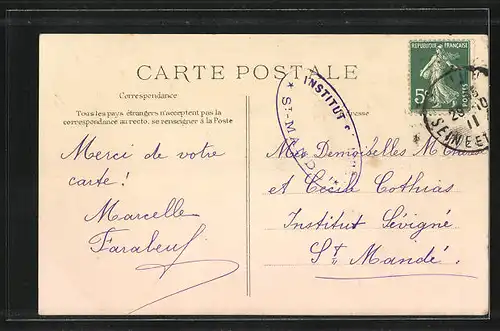 CARTE POSTALE
Correspondance
Tous les pays étrangers n'acceptent pas la
correspondance au recto, se renseigner à la Poste
Merci de votre
carte!
Marcelle
Farabeuf
RÉPUBLIQUE FRANÇAISE
5c
POSTES
INSTITUT S
* ST-MAND
11
SEINE ET
Mes Demoiselles
et Cécile Cothias
Institut Sévigné
St Mandé.